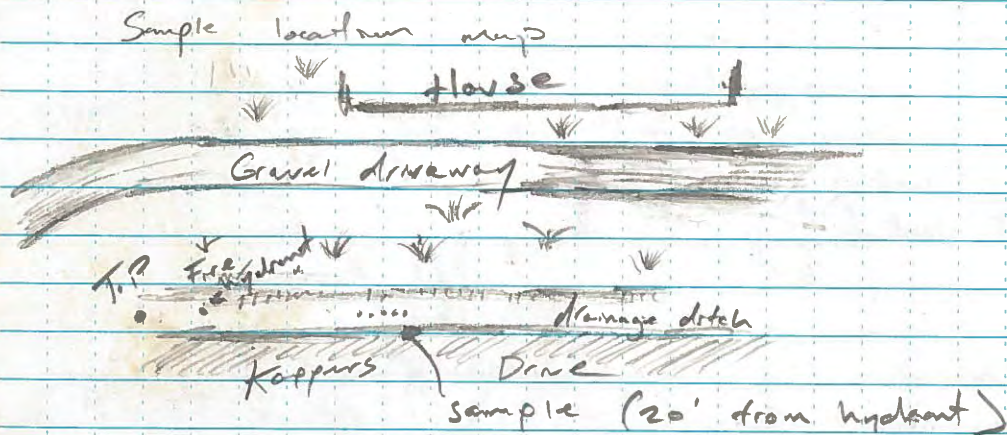 Sample location map
House
Gravel driveway
T.P
Fire hydrant
drainage ditch
Koppers Drive
sample (20' from hydrant)